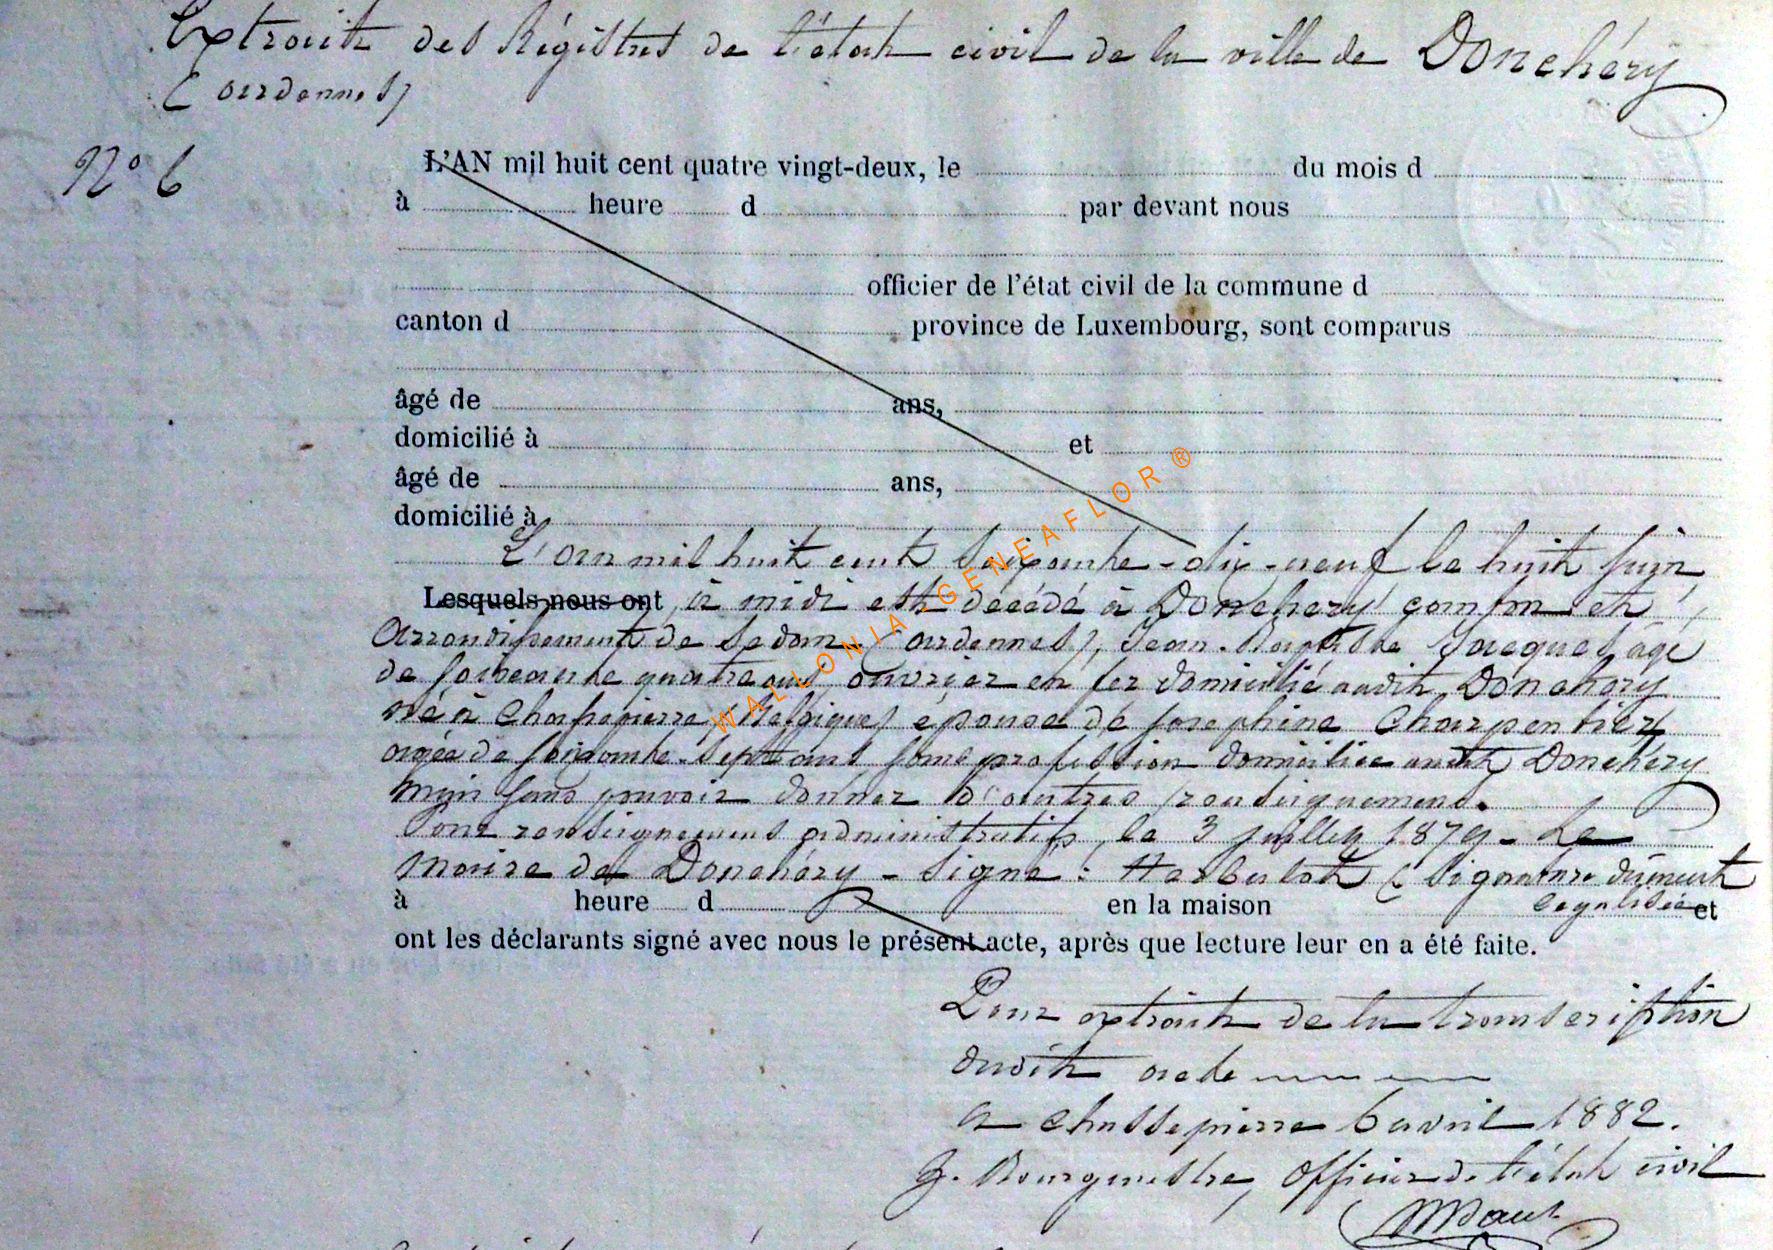 Extrait des Régistres de l'état civil de la ville de Donchéry
(ardennes)
N° 6
L'AN mil huit cent quatre vingt-deux, le du mois d
à heure d par devant nous
officier de l'état civil de la commune d
canton d province de Luxembourg, sont comparus
âgé de ans,
domicilié à et
âgé de ans,
domicilié à
L'an mil huit cent soixante-dix-neuf le huit juin
Lesquels nous ont à midi est décédé à Donchery canton et
arrondissement de Sedan (ardennes), Jean-Baptiste Jacques âgé
de soixante quatre ans ouvrier en fer domicilié audit Donchery
né à Chassepierre (Belgique) époux de Josephine Charpentier
agée de soixante-sept ans sans profession domiciliée audit Donchéry
sans pouvoir donner d'autres renseignements.
Pour renseignements administratifs, le 3 juillet 1879 - Le
Maire de Donchéry - Signé : Herbulot (Signature dûment
légalisée
à heure d en la maison et
ont les déclarants signé avec nous le présent acte, après que lecture leur en a été faite.
Pour extrait de la transcription
dudit acte
a Chassepierre 6 avril 1882.
Bourgmestre, Officier de l'état civil
WALLONIA GENEAFLOR ®